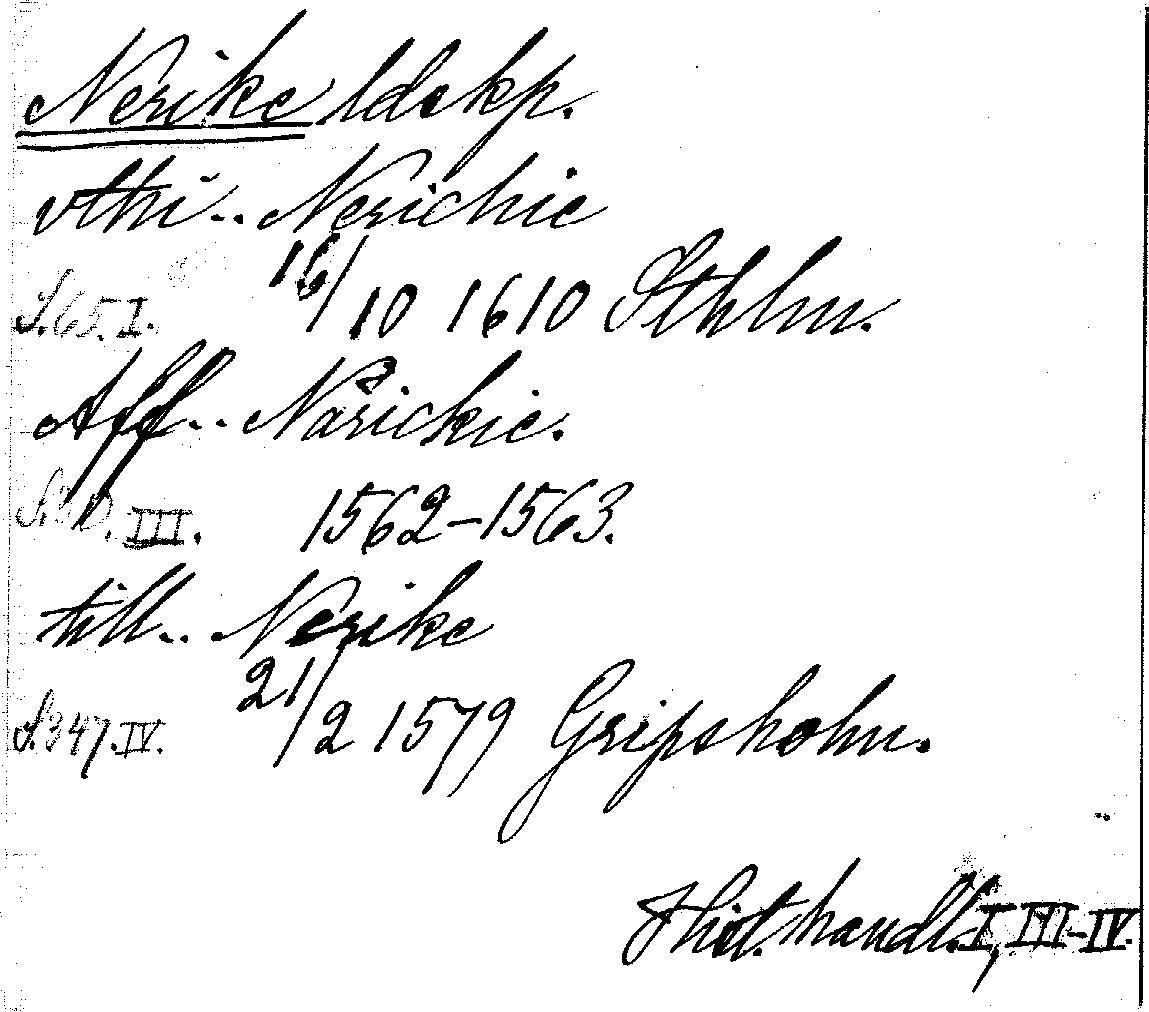 Nerike ldskp.
vthi.. Nerichie
S. 65. I. 16/10 1610 Sthlm.
Aff.. Nårickie.
III. 1562-1563.
till.. Nerike
S. 347. IV. 21/2 1579 Gripsholm.
Hist. handl. I, III-IV.